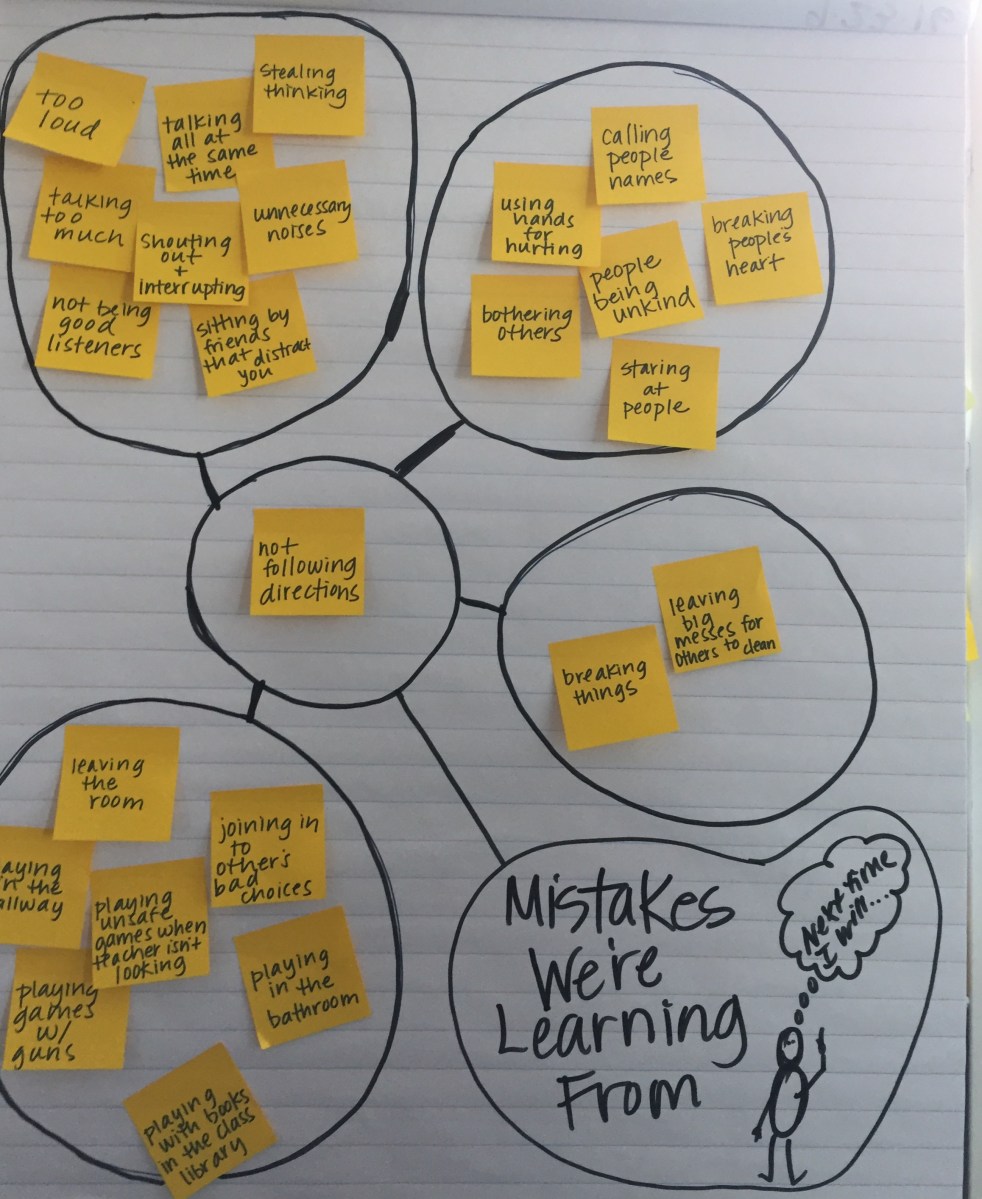 too
loud
talking
all at
the same
time
Stealing
thinking
talking
too
much
Shouting
out
+
interrupting
unnecessary
noises
not being
good
listeners
sitting by
friends
that distract
you
calling
people
names
using
hands
for
hurting
breaking
people's
heart
people
being
unkind
bothering
others
staring
at
people
not
following
directions
leaving
big
messes for
others to clean
breaking
things
leaving
the
room
joining in
to
other's
bad
choices
aying
in the
allway
playing
unsafe
games when
teacher isn't
looking
playing
games
w/
guns
playing
in the
bathroom
playing
with books
in the class
library
Mistakes
We're
Learning
From
Next time
I will...